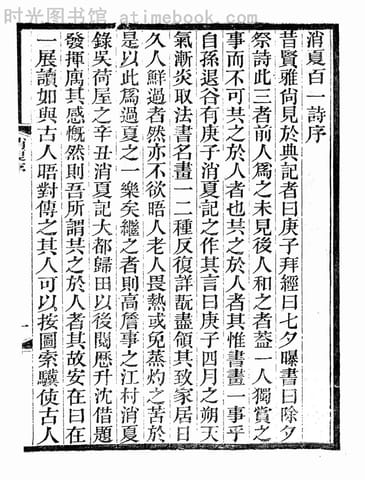 时光图书馆 - atimebook.com
消夏百一詩序
昔賢雅尙見於典記者曰庚子拜經曰七夕曝書曰除夕
祭詩此三者前人爲之未見後人和之者葢一人獨賞之
事而不可共之於人者也共之於人者其惟書畫一事乎
自孫退谷有庚子消夏記之作其言曰庚子四月之朔天
氣漸炎取法書名畫一二種反復詳翫盡領其致家居日
久人鮮過者然亦不欲晤人老人畏熱或免蒸灼之苦於
是以此爲過夏之一樂矣繼之者則高詹事之江村消夏
錄吳荷屋之辛丑消夏記大都歸田以後閱歷升沈借題
發揮寓其感慨然則吾所謂共之於人者其故安在曰在
一展讀如與古人唔對傳之其人可以按圖索驥使古人
一
时光图书馆 - www.atimebook.com